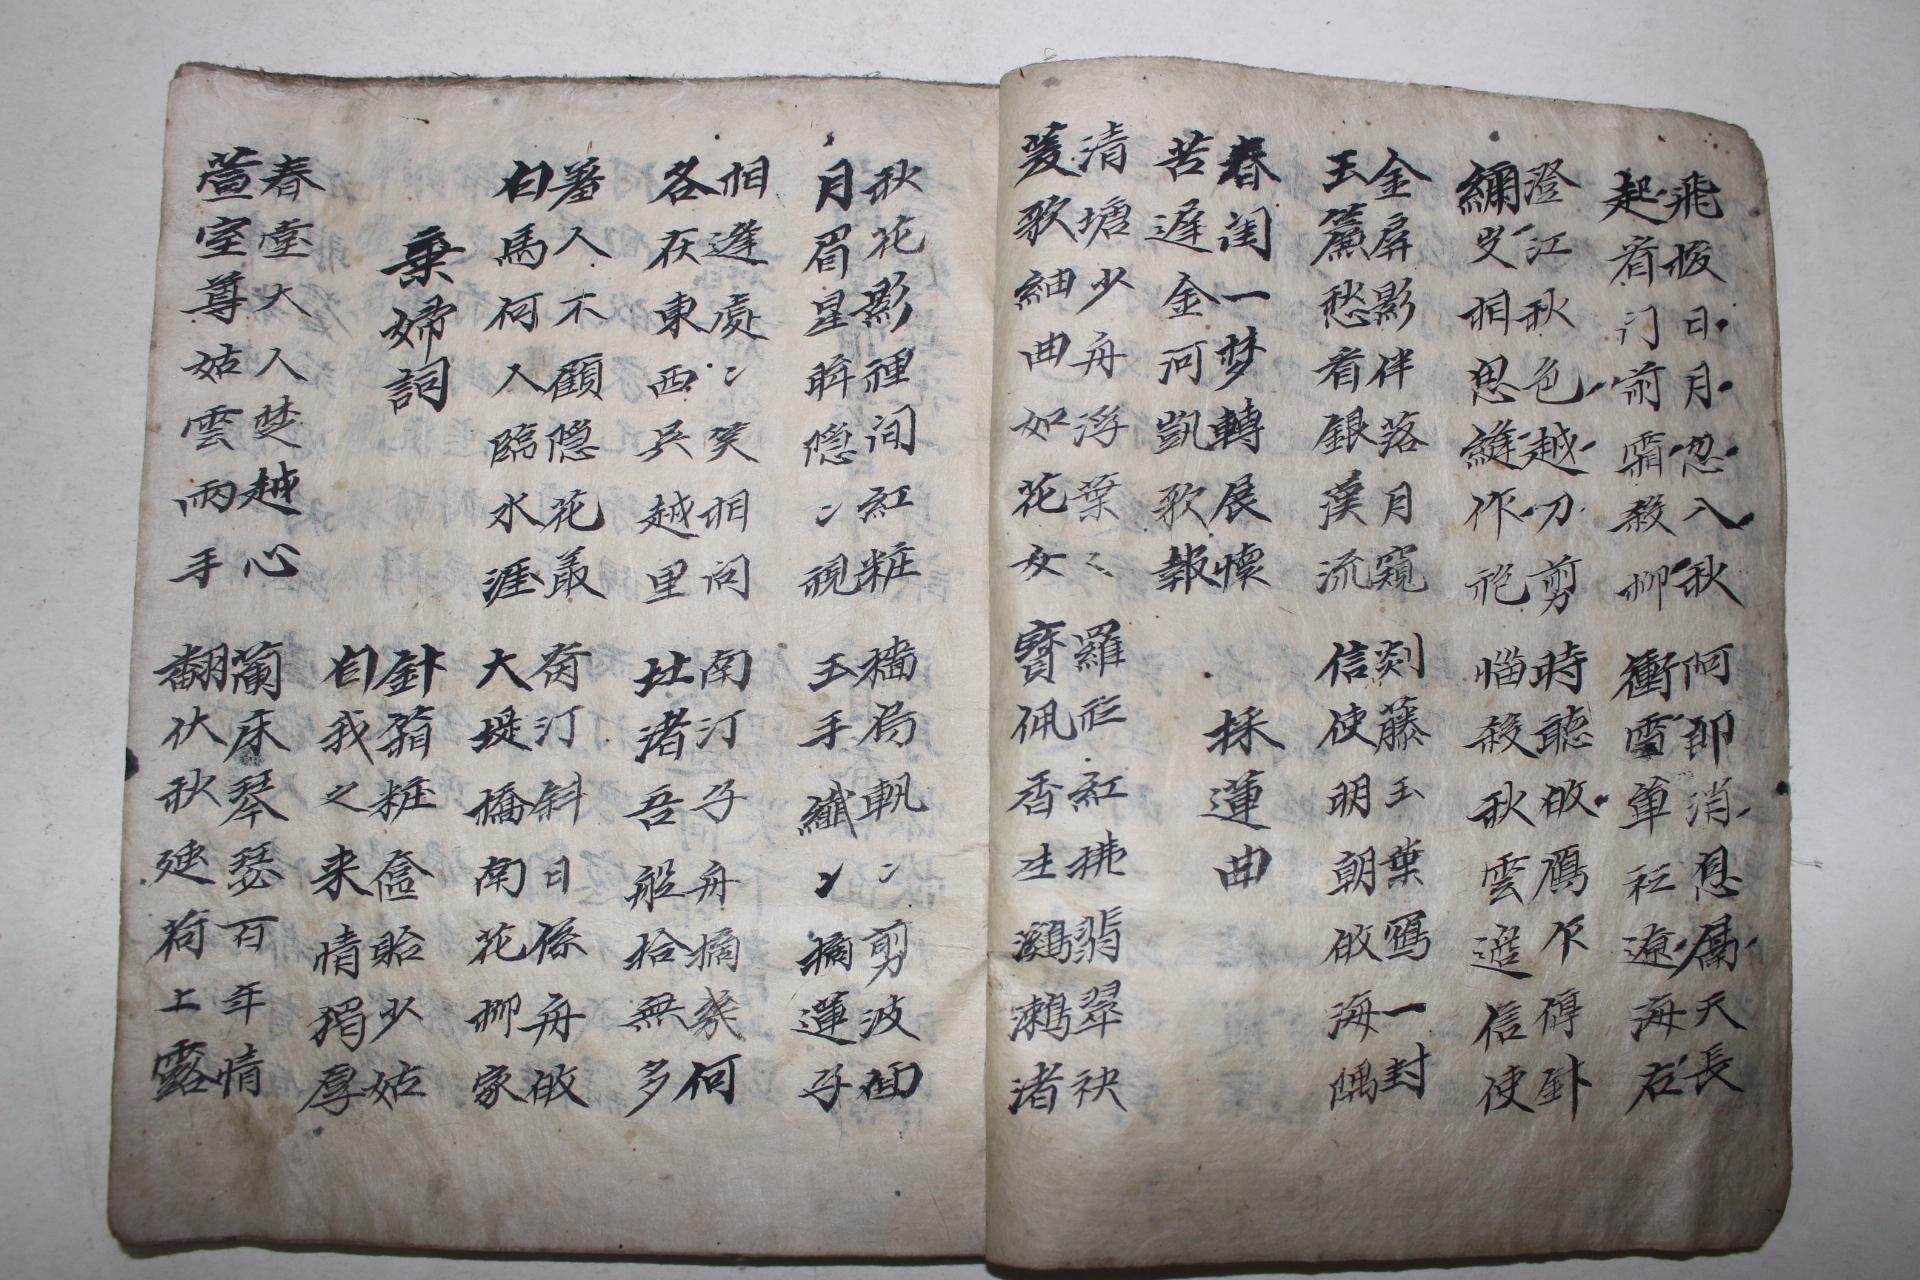 飛梭日月忽八秋
起看门前霜殺柳
阿郎消息屬天長
衝雪単衫遼海右
澄江秋色越刀剪
綱文相思縫作袍
時聽的鴈下傳針
惱殺秋雲遥信使
金屏影伴落月窺
玉簾愁看銀漢流
剡藤玉葉寫一封
信使明朝的海隅
春闺一梦轉展懷
苦遲金河凱歌報
採蓮曲
清塘少舟浮葉〻
菱歌細曲如花女
羅衫紅拂翡翠袂
寳佩香生鸂鶒渚
秋花影裡间紅粧
月眉星眸隠〻視
檣烏軌〻剪波面
玉手纖〻摘蓮子
相逢處〻笑相问
各在東西呉越里
南汀子舟摘幾何
北渚吾船拾無多
羞人不顧隠花叢
白馬何人臨水涯
荷汀斜日係舟的
大堤橋南花柳家
棄婦詞
針箱粧奩貽少姑
自我之来情猶厚
春臺大人楚越心
萱室尊姑雲雨手
蘭床琴瑟百年情
翻伏秋建荷上露